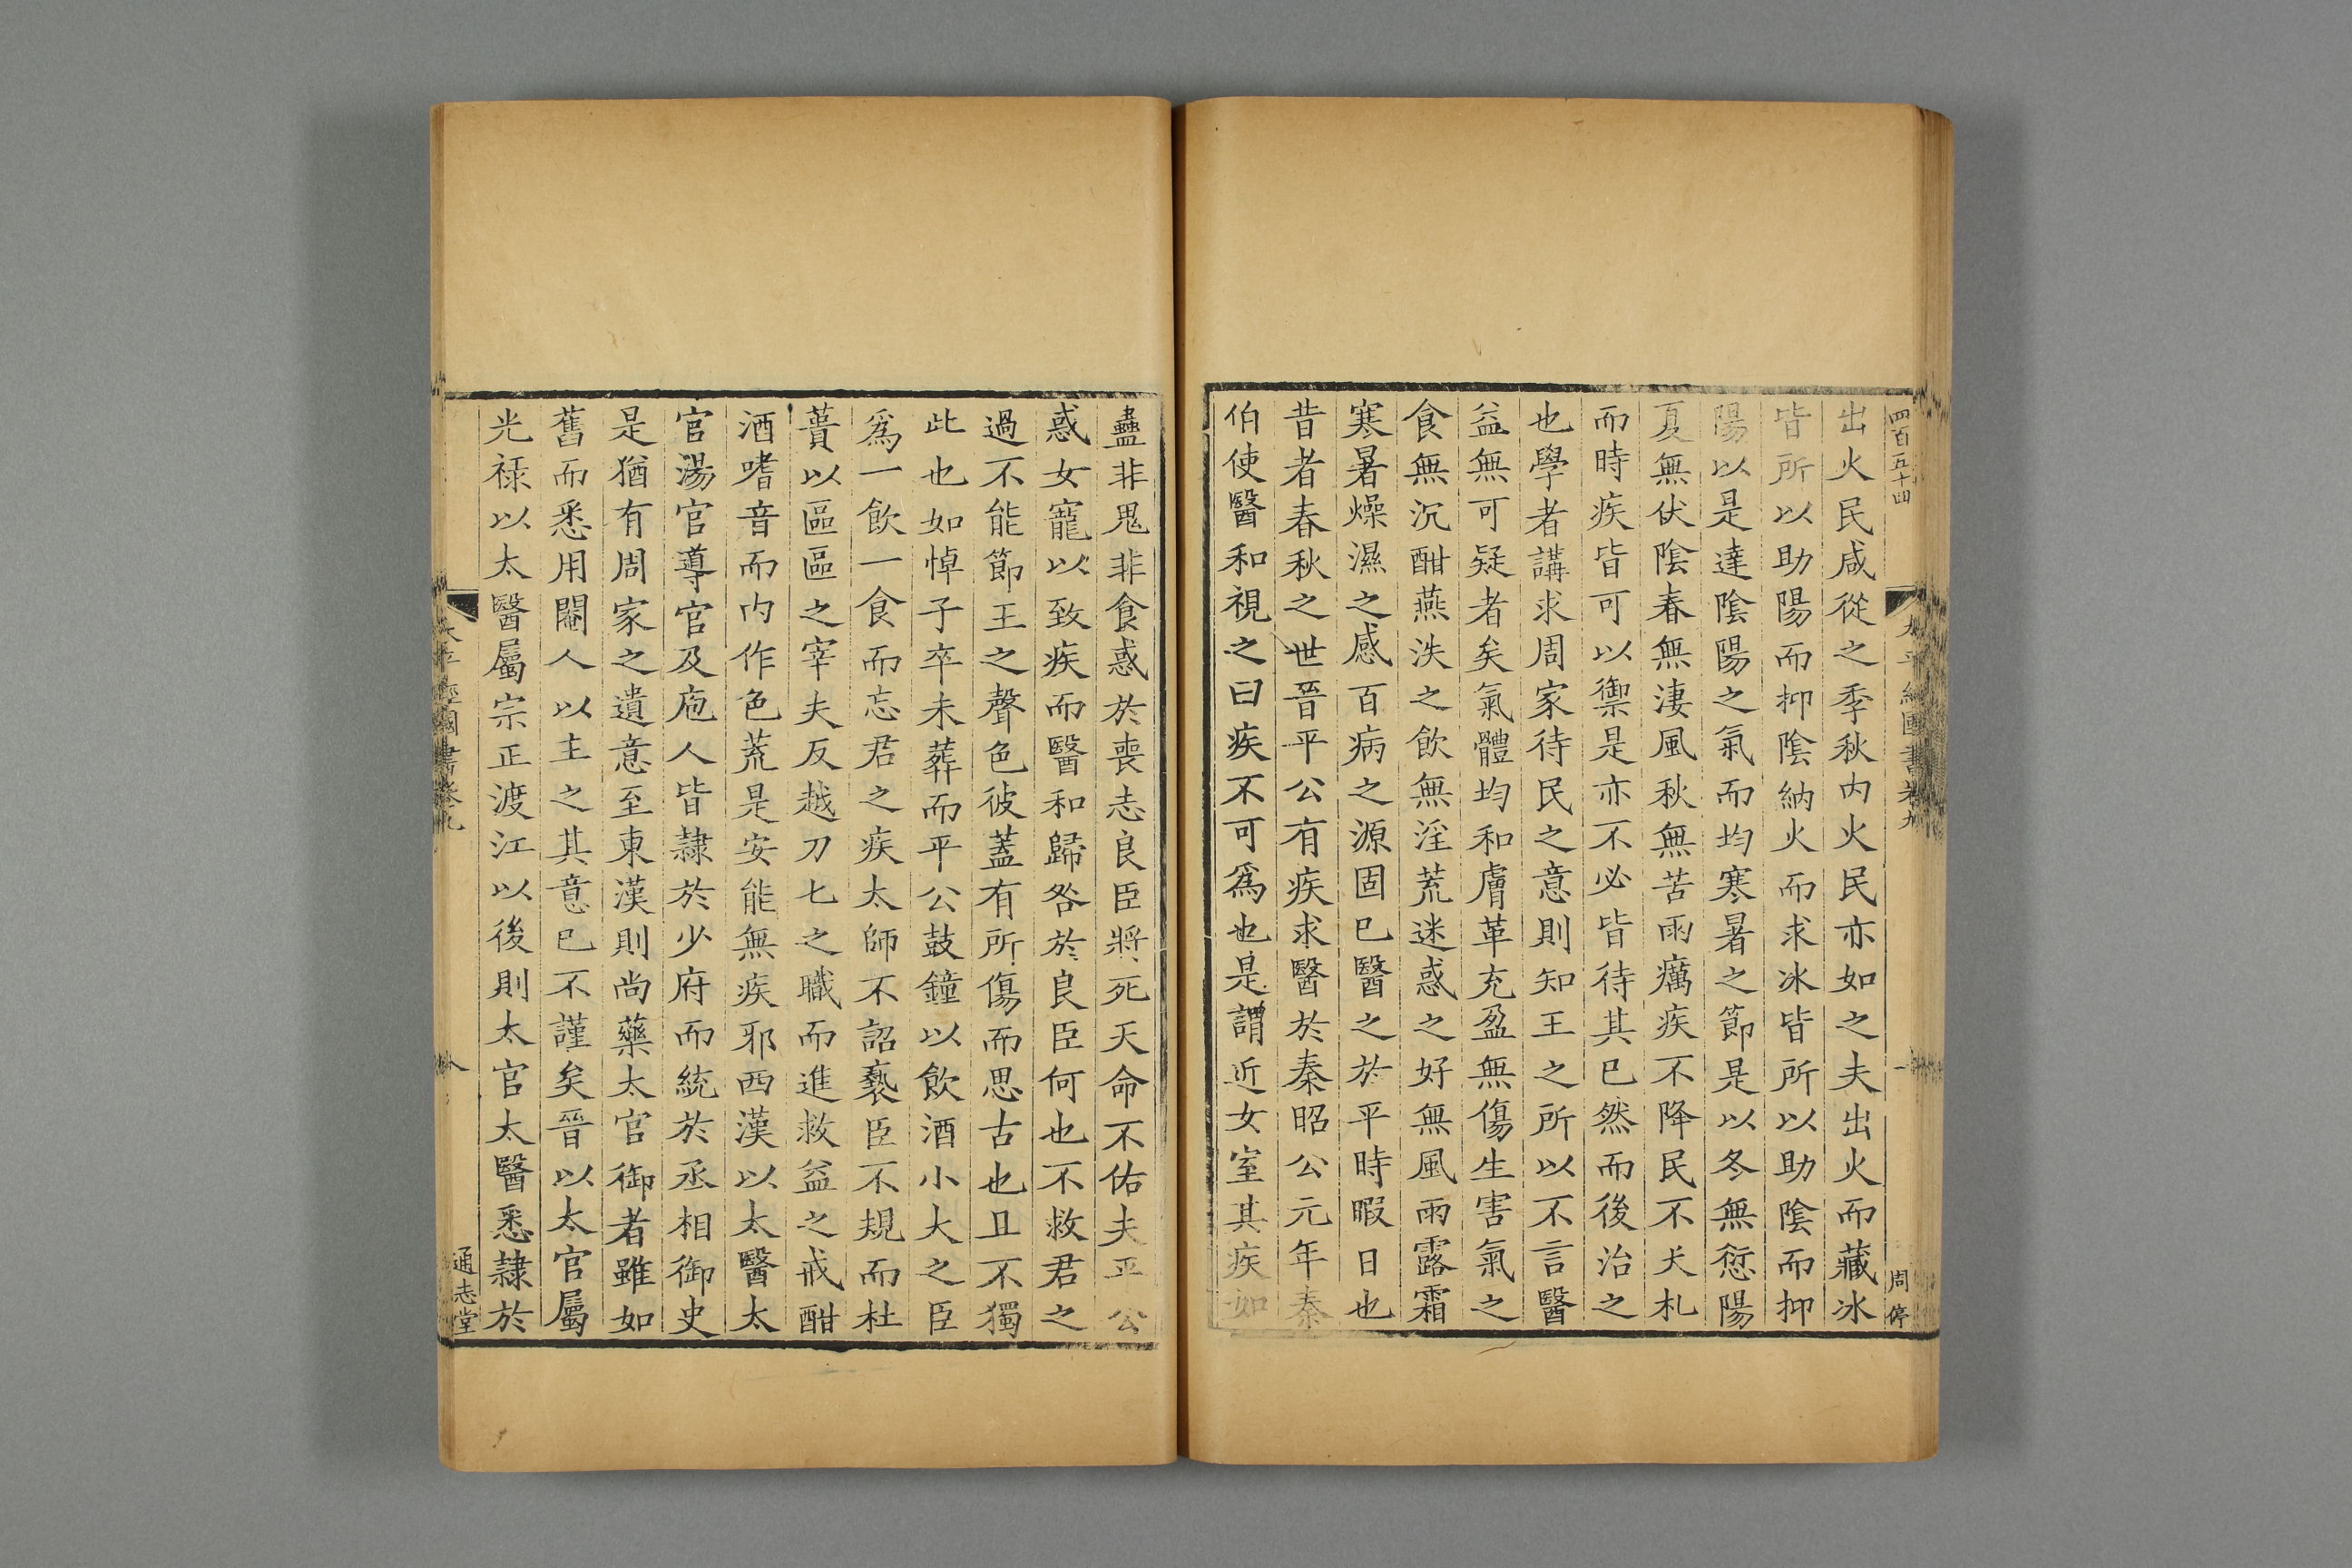 四百五十四
周停
出火民咸從之季秋内火民亦如之夫出火而藏冰
皆所以助陽而抑陰納火而求冰皆所以助陰而抑
陽以是達陰陽之氣而均寒暑之節是以冬無愆陽
夏無伏陰春無淒風秋無苦雨癘疾不降民不夭札
而時疾皆可以禦是亦不必皆待其已然而後治之
也學者講求周家待民之意則知王之所以不言醫
益無可疑者矣氣體均和膚革充盈無傷生害氣之
食無沉酣燕泆之飲無淫荒迷惑之好無風雨露霜
寒暑燥濕之感百病之源固已醫之於平時暇日也
昔者春秋之世晉平公有疾求醫於秦昭公元年秦
伯使醫和視之曰疾不可爲也是謂近女室其疾如
蠱非鬼非食惑於喪志良臣將死天命不佑夫平公
惑女寵以致疾而醫和歸咎於良臣何也不救君之
過不能節王之聲色彼蓋有所傷而思古也且不獨
此也如悼子卒未葬而平公鼓鐘以飲酒小大之臣
爲一飲一食而忘君之疾太師不詔褻臣不規而杜
蕢以區區之宰夫反越刀匕之職而進救益之戒酣
酒嗜音而内作色荒是安能無疾邪西漢以太醫太
官湯官導官及庖人皆隷於少府而統於丞相御史
是猶有周家之遺意至東漢則尚藥太官御者雖如
舊而悉用閹人以主之其意已不謹矣晉以太官屬
光禄以太醫屬宗正渡江以後則太官太醫悉隷於
太平經國書卷九
八
通志堂